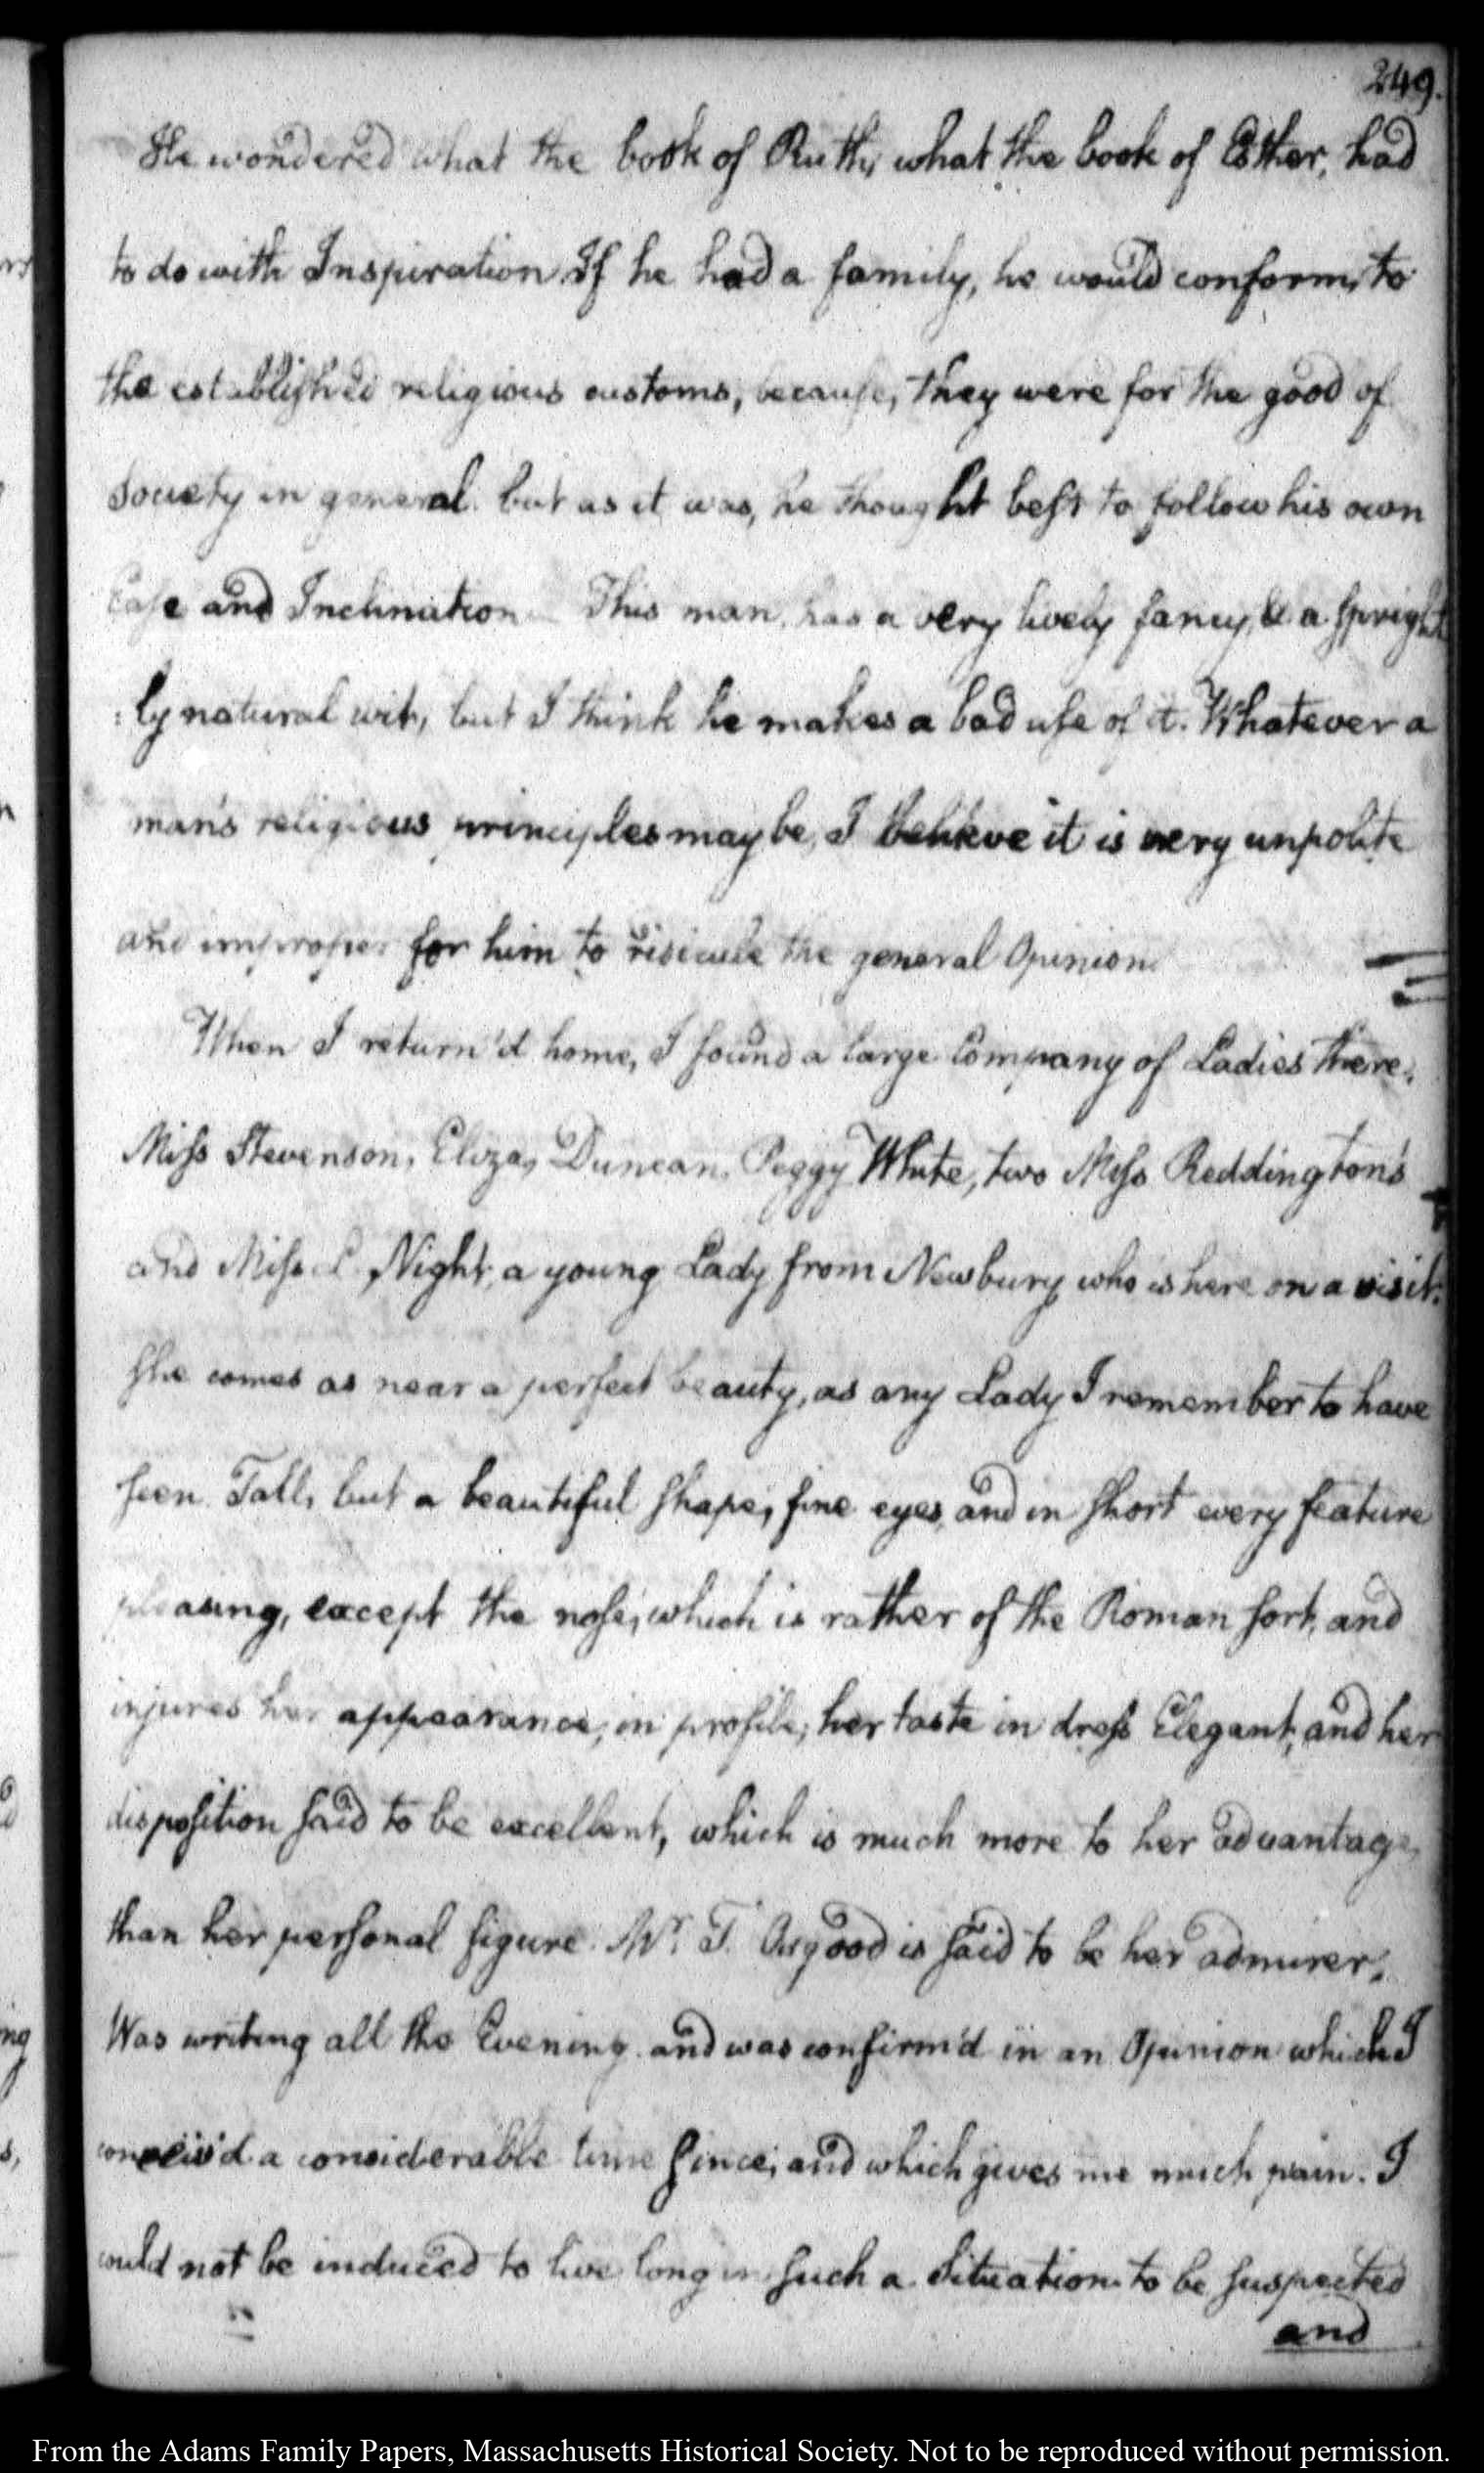 249.
He wondered what the book of Ruth, what the book of Esther, had
to do with Inspiration. If he had a family, he would conform, to
the established religious customs, because, they were for the good of
Society in general. but as it was, he thought best to follow his own
Ease and Inclination. This man, has a very lively fancy, & a spright
:ly natural wit, but I think he makes a bad use of it. Whatever a
man's religious principles may be, I believe it is very unpolite
and improper for him to ridicule the general Opinion.
When I return'd home, I found a large Company of Ladies there.
Miss Stevenson, Eliza, Duncan, Peggy White, two Miss Reddington's
and Miss Night, a young Lady from Newbury who is here on a visit.
She comes as near a perfect beauty, as any Lady I remember to have
seen. Tall, but a beautiful shape, fine eyes, and in short every feature
pleasing, except the nose, which is rather of the Roman sort, and
injures her appearance, in profile, her taste in dress Elegant, and her
disposition said to be excellent, which is much more to her advantage,
than her personal figure. Mr. T. Osgood is said to be her admirer.
Was writing all the Evening and was confirm'd in an Opinion which I
conceiv'd a considerable time since, and which gives me much pain. I
could not be induced to live long in such a Situation. to be suspected
and
From the Adams Family Papers, Massachusetts Historical Society. Not to be reproduced without permission.